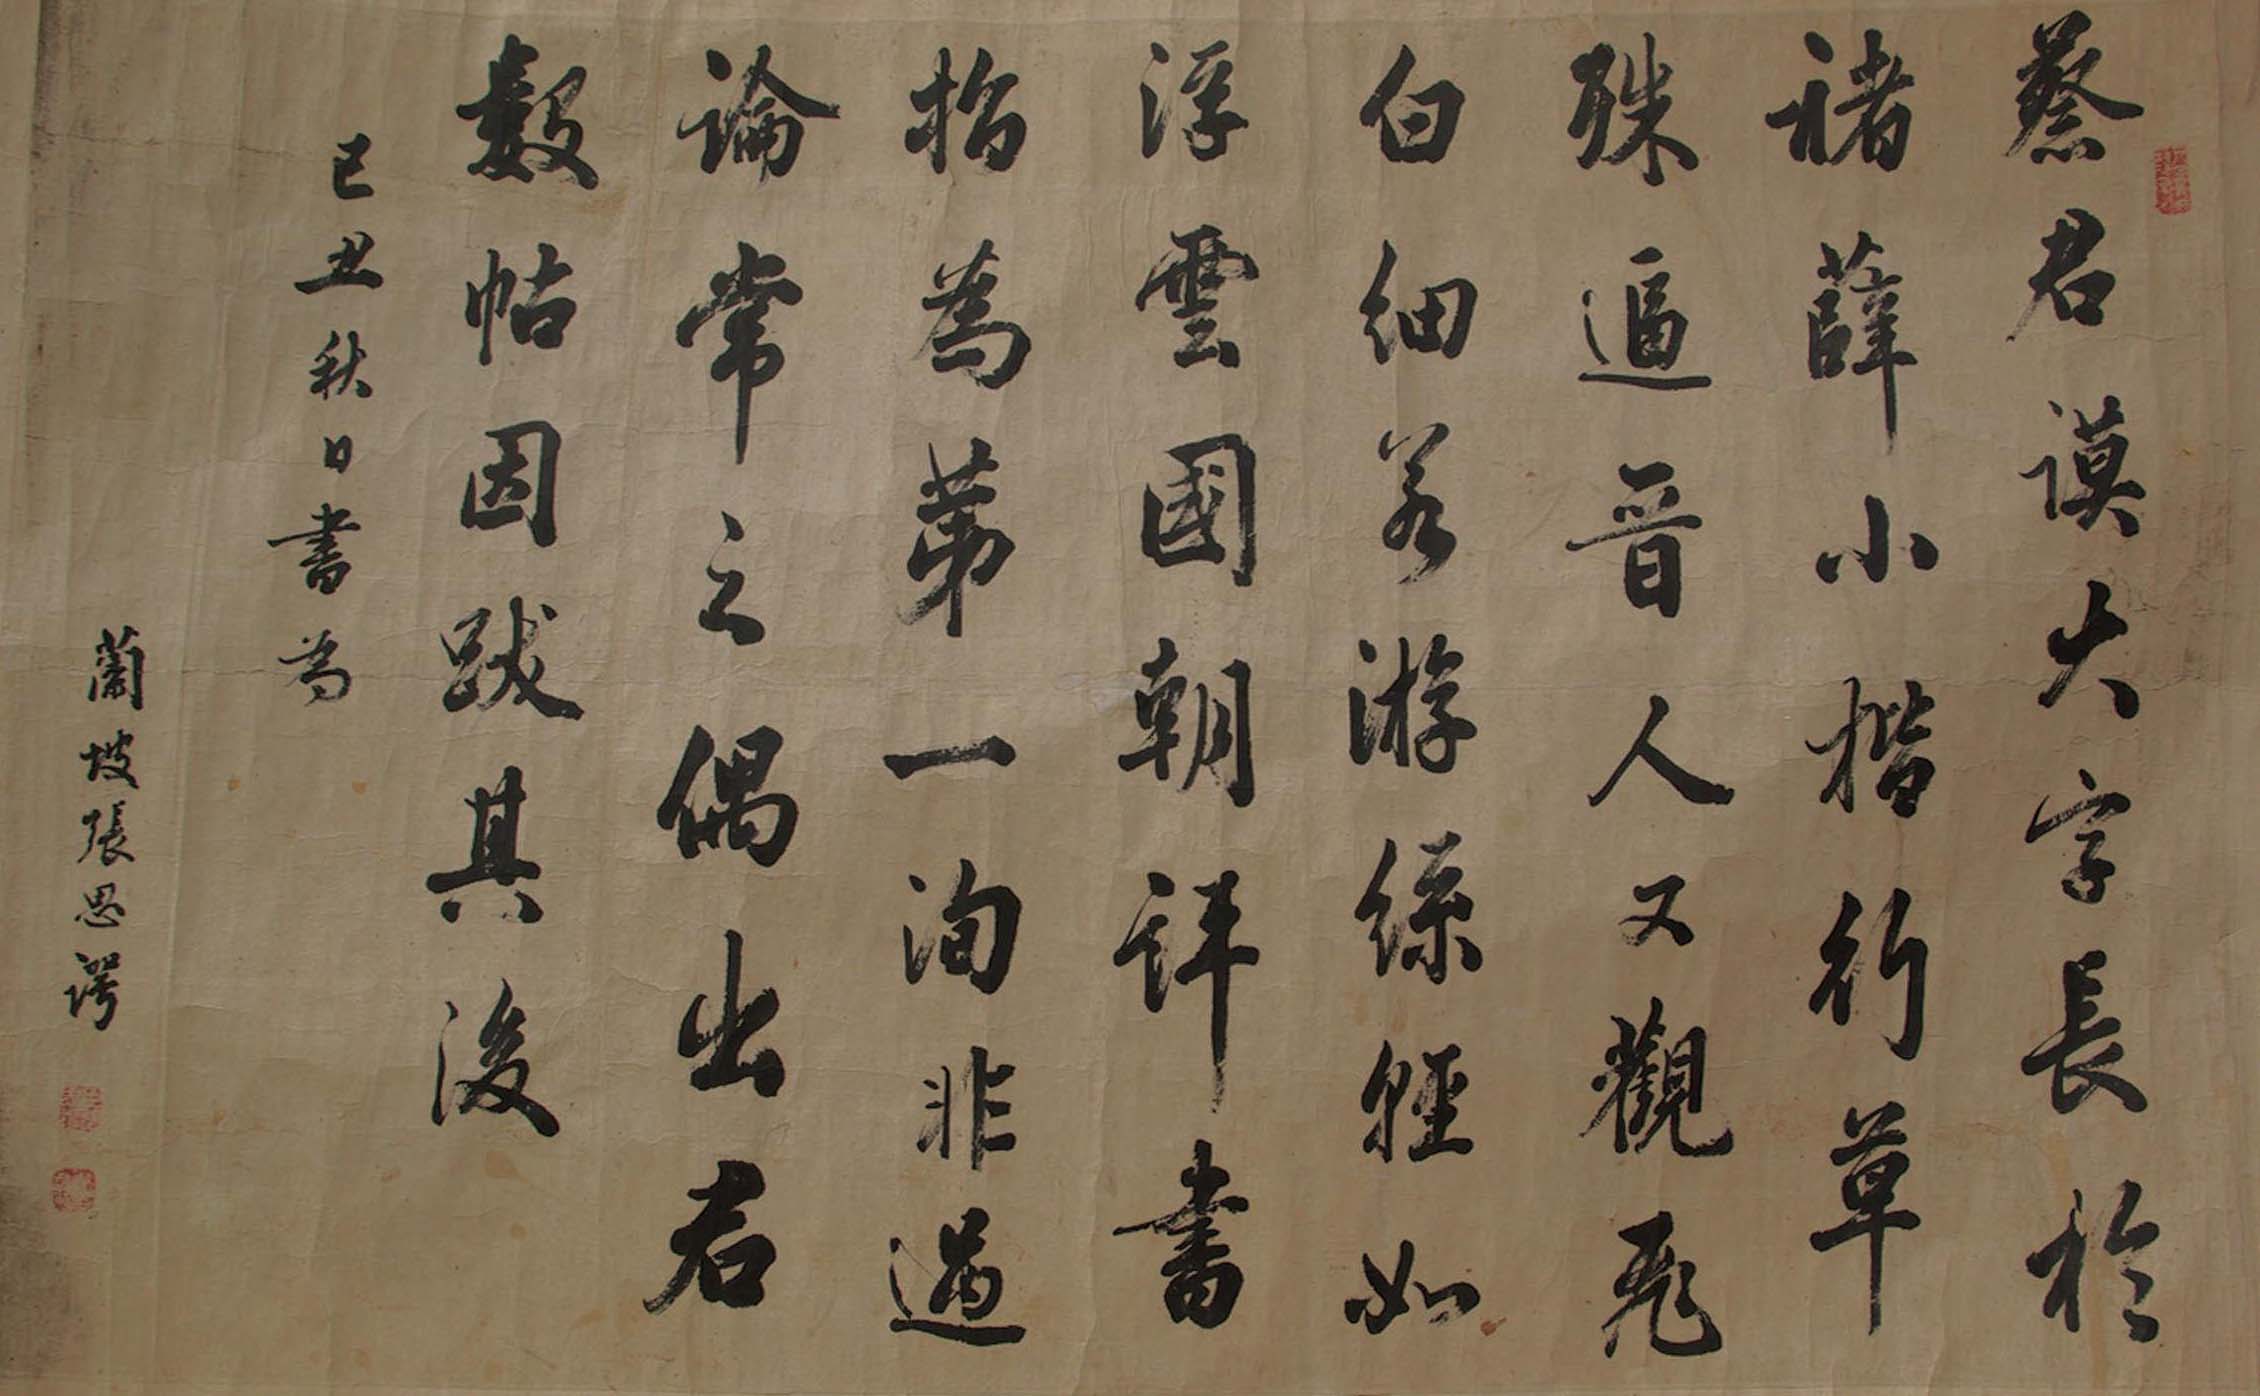 蔡君謨大字長於
褚薛小楷行草
殊逼晉人又觀飛
白細若游絲輕如
浮雲國朝評書
指為第一洵非過
論常之偶出君
數帖因跋其後
己丑秋日書為
蘭坡張思諤